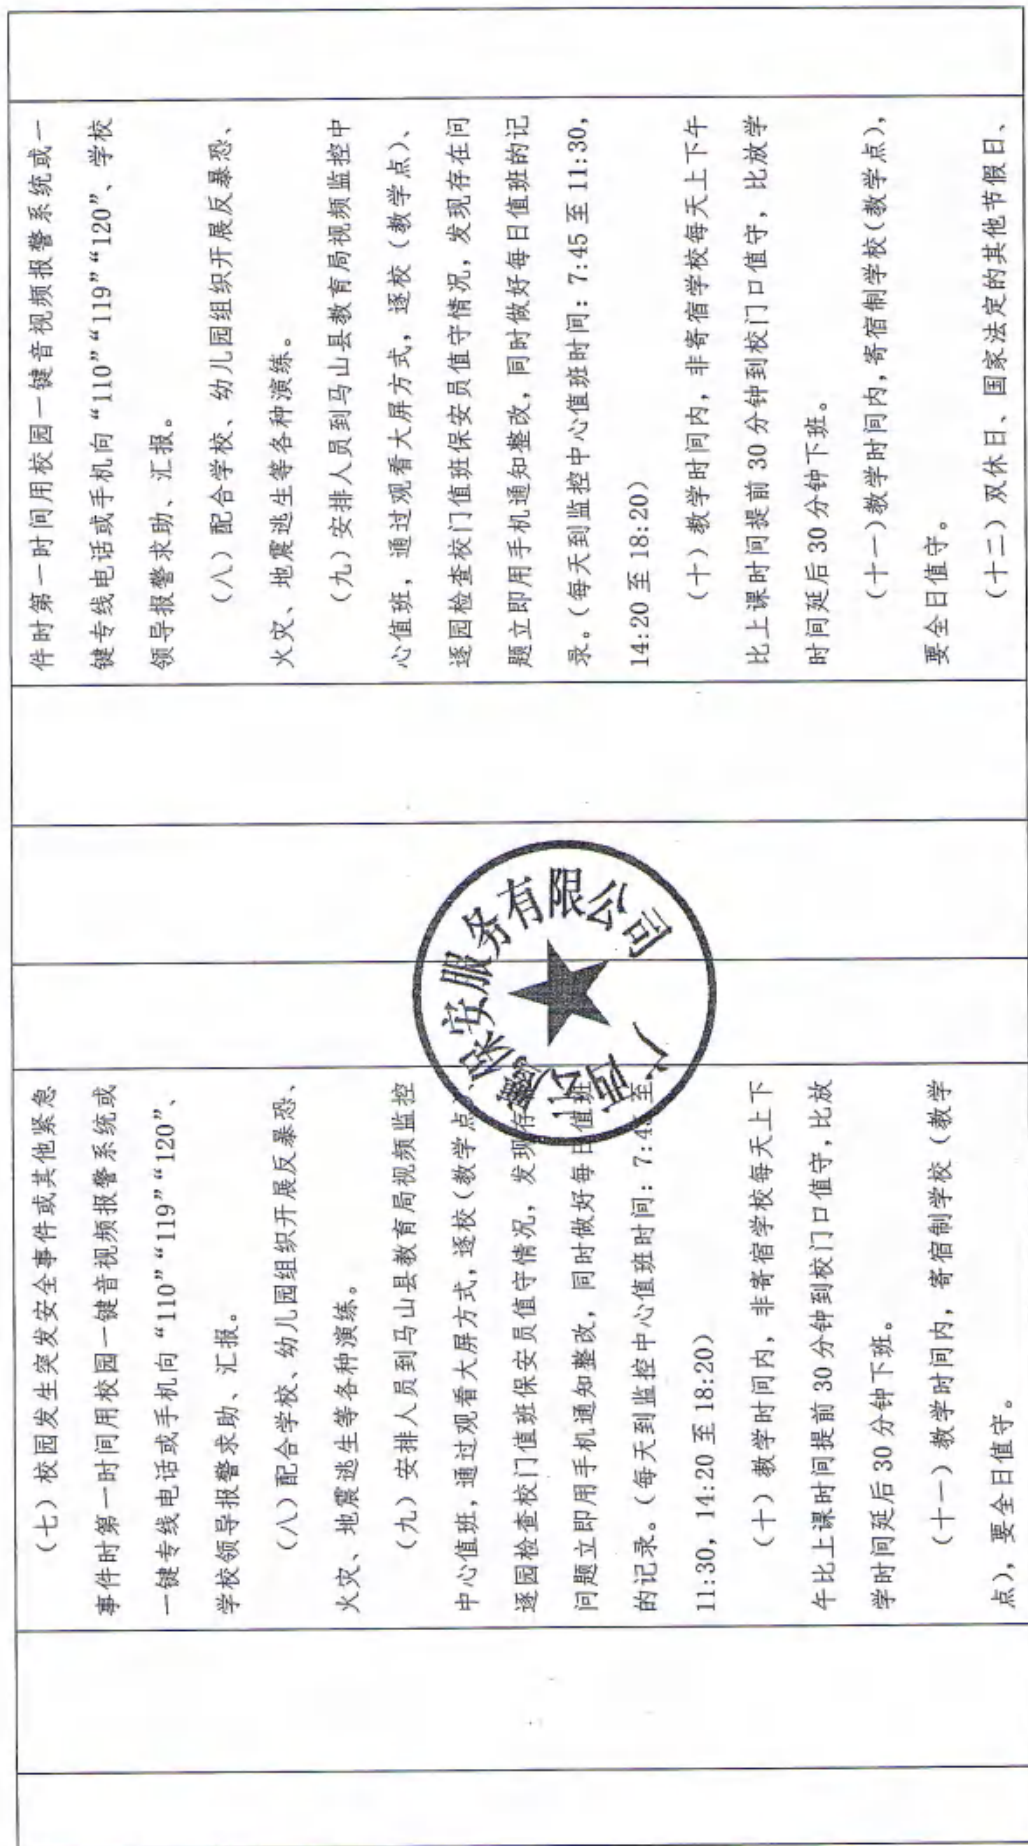 （七）校园发生突发安全事件或其他紧急
事件时第一时间用校园一键音视频报警系统或
一键专线电话或手机向“110”“119”“120”、
学校领导报警求助、汇报。
（八）配合学校、幼儿园组织开展反暴恐、
火灾、地震逃生等各种演练。
（九）安排人员到马山县教育局视频监控
中心值班，通过观看大屏方式，逐校（教学点）、
逐园检查校门值班保安员值守情况，发现存在
问题立即用手机通知整改，同时做好每日值班
的记录。（每天到监控中心值班时间：7:45至
11:30，14:20至18:20）
（十）教学时间内，非寄宿学校每天上下
午比上课时间提前30分钟到校门口值守，比放
学时间延后30分钟下班。
（十一）教学时间内，寄宿制学校（教学
点），要全日值守。
广西
保安服务有限公司
件时第一时间用校园一键音视频报警系统或一
键专线电话或手机向“110”“119”“120”、学校
领导报警求助、汇报。
（八）配合学校、幼儿园组织开展反暴恐、
火灾、地震逃生等各种演练。
（九）安排人员到马山县教育局视频监控中
心值班，通过观看大屏方式，逐校（教学点）、
逐园检查校门值班保安员值守情况，发现存在问
题立即用手机通知整改，同时做好每日值班的记
录。（每天到监控中心值班时间：7:45至11:30，
14:20至18:20）
（十）教学时间内，非寄宿学校每天上下午
比上课时间提前30分钟到校门口值守，比放学
时间延后30分钟下班。
（十一）教学时间内，寄宿制学校（教学点），
要全日值守。
（十二）双休日、国家法定的其他节假日、